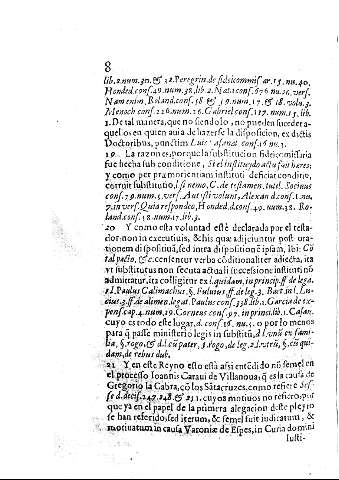 8
lib.2.num.30. & 32. Peregrin. de fideicommissar. 15. nu. 40.
Honded. conf. 49. num. 38. lib. 2. Nat. 1. conf. 676 nu. 26. vers.
Nam enim, Roland. conf. 58 & 59. num. 17. & 18. volu. 3.
Menoch conf. 226. num. 26. Gabriel conf. 117. num. 15. lib.
1. De tal manera, que no siendolo, no pueden suceder a-
quellos en quien auia de hazerse la disposicion, ex dictis
Doctoribus, punctim Casanat conf. 16 nu. 3.
19 La razon es, porque la substitucion fideicomissaria
fue hecha sub condicione, Si el instituydo actu fuit heres;
y como per praemorientiam instituti deficiat conditio,
corruit substitutio, l. si nemo, C. de testamen. tutel. Socinus
conf. 79. num. 5. vers. Aut isti volunt, Alexand. conf. 1. nu.
7. in vers. Quia respondeo, Honded. d. conf. 49. num. 38. Ro-
land. conf. 58. num. 17. lib. 3.
20 Y como esta voluntad esté declarada por el testa-
dor non in executiuis, & his quae adijciuntur post ora-
tionem dispositiuam, sed intra dispositionē ipsam, ibi: Cō
tal pacto, & c. censentur verba cōditionaliter adiecta, ita
vt substitutus non secuta actuali successione instituti nō
admittatur, ita colligitur ex l. quidam, in princip. ff. de lega.
2. l. Paulus Calimachus, §. Fuluius ff. de leg. 3. Bart. in l. Lu-
cius. 3. ff. de alimen. legat. Paulus conf. 338. lib. 1. Garcia de ex-
pensis. cap. 4. num. 29. Corneus conf. 97. in princ. lib. 1. Casan.
cuyo es todo este lugar, d. conf. 16. nu. 5. o por lo menos
para q̄ passe ministerio legis in substitutū, d. l. vnū ex fami-
lia, §. rogo, & d. l. cū pater, §. rogo, de leg. 2. l. vtrū, §. cū qui-
dam, de rebus dub.
21 Y en este Reyno esto està asi entēdido nō semel en
el processo Ioannis Caraui de Villanoua, q̄ es la causa de
Gregorio la Cabra, cō los Sātacruzes, como refiere
se d. decis. 247. 248. & 251. cuyos motiuos no refiero, por
que ya en el papel de la primera alegacion deste pleyto
se han referido, sed iterum, & semel fuit iudicatum, &
motiuatum in causa Varoniae de Espes, in Curia domini
Iusti-